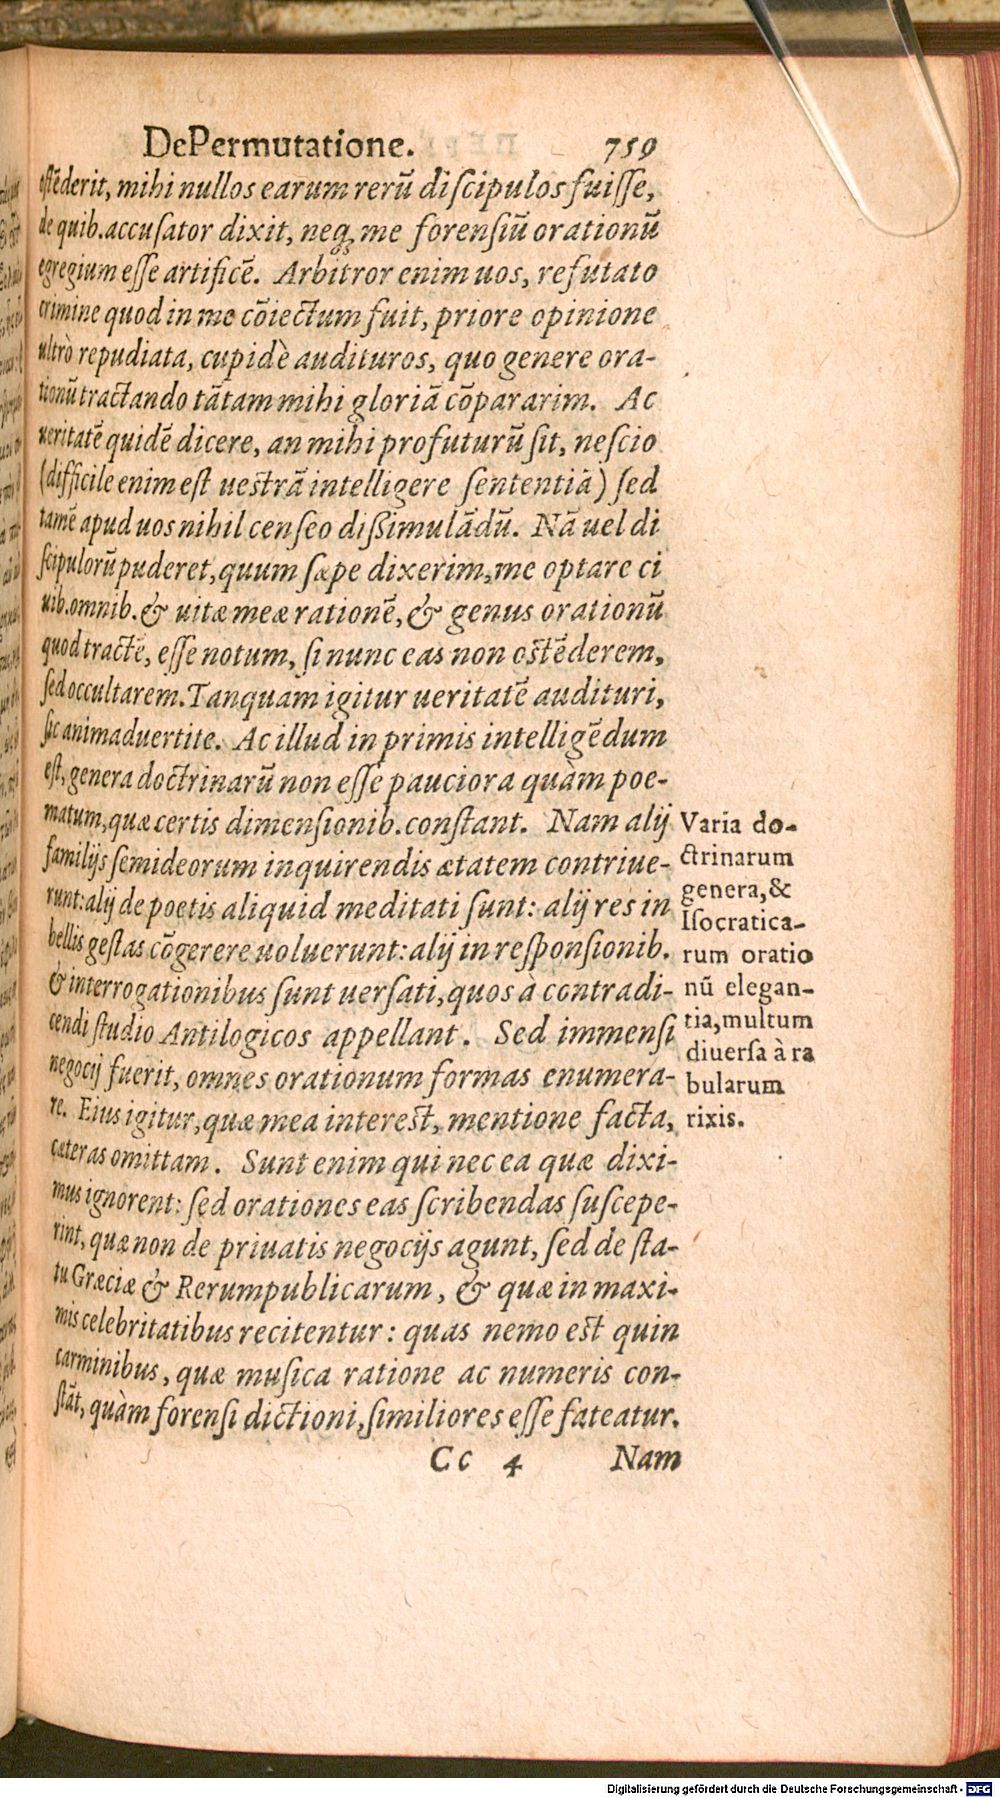 De Permutatione. 759
ostēderit, mihi nullos earum rerū discipulos fuisse,
de quib. accusator dixit, neq; me forensiū orationū
egregium esse artificē. Arbitror enim uos, refutato
crimine quod in me cōiectum fuit, priore opinione
ultrò repudiata, cupidè audituros, quo genere ora-
tionū tractando tātam mihi gloriā cōpararim. Ac
ueritatē quidē dicere, an mihi profuturū sit, nescio
(difficile enim est uestrā intelligere sententiā) sed
tamē apud uos nihil censeo dißimulādū. Nā uel di
scipulorū puderet, quum sæpe dixerim, me optare ci
uib. omnib. & uitæ meæ rationē, & genus orationū
quod tractē, esse notum, si nunc eas non ostēderem,
sed occultarem. Tanquam igitur ueritatē audituri,
sic animaduertite. Ac illud in primis intelligēdum
est, genera doctrinarū non esse pauciora quàm poe-
matum, quæ certis dimensionib. constant. Nam alij
familijs semideorum inquirendis ætatem contriue-
runt: alij de poetis aliquid meditati sunt: alij res in
bellis gestas cōgerere uoluerunt: alij in responsionib.
& interrogationibus sunt uersati, quos à contradi-
cendi studio Antilogicos appellant. Sed immensi
negocij fuerit, omnes orationum formas enumera-
re. Eius igitur, quæ mea interest, mentione facta,
cæteras omittam. Sunt enim qui nec ea quæ dixi-
mus ignorent: sed orationes eas scribendas suscepe-
rint, quæ non de priuatis negocijs agunt, sed de sta-
tu Græciæ & Rerumpublicarum, & quæ in maxi-
mis celebritatibus recitentur: quas nemo est quin
carminibus, quæ musica ratione ac numeris con-
stāt, quàm forensi dictioni, similiores esse fateatur.
Cc 4 Nam
Varia do-
ctrinarum
genera, &
Isocratica-
rum oratio
nū elegan-
tia, multum
diuersa à ra
bularum
rixis.
Digitalisierung gefördert durch die Deutsche Forschungsgemeinschaft - DFG